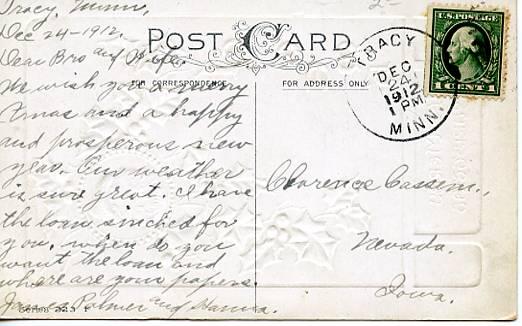 Tracy, Minn,
Dec 24-1912.
Dear Bro and Wife
We wish you a merry
Xmas and a happy
and prosperous new
year. Our weather
is sure great. I have
the loan sinched for
you. when do you
want the loan and
where are your papers.
James Palmer and Hanna.
Series 323 F
2-
POST CARD
FOR CORRESPONDENCE
FOR ADDRESS ONLY
TRACY
DEC
24
1912
1 PM
MINN.
U.S. POSTAGE
1 CENT 1
Clarence Cassem.,
Nevada.
Iowa.